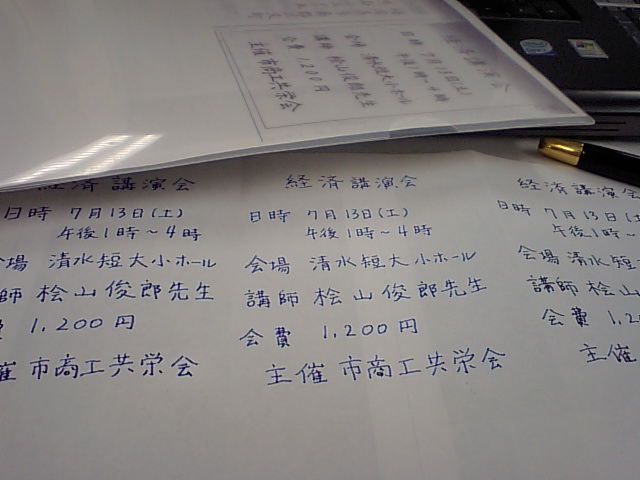 経済講演会
日時 7月13日(土)
午後1時~4時
会場 清水短大小ホール
講師 桧山俊郎先生
会費 1,200円
主催 市商工共栄会
経済講演会
日時 7月13日(土)
午後1時~4時
会場 清水短大小ホール
講師 桧山俊郎先生
会費 1,200円
主催 市商工共栄会
経済講演会
日時 7月13日(土)
午後1時~4時
会場 清水短大小ホール
講師 桧山俊郎先生
会費 1,200円
主催 市商工共栄会
経済講演会
日時 7月13日(土
午後1時~
会場 清水短
講師 桧山
会費 1,2
主催